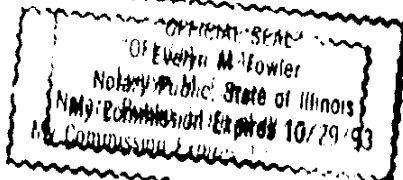 "OFFICIAL SEAL"
Evelyn M. Fowler
Notary Public, State of Illinois
My Commission Expires 10/29/93